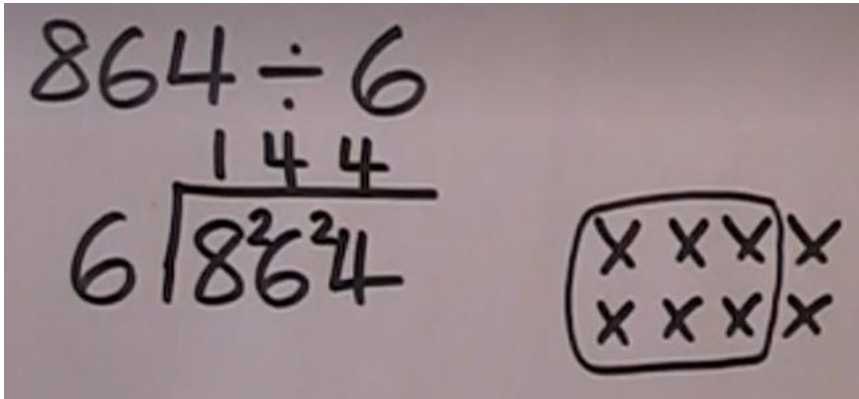 864 ÷ 6
144
6 8²6²4
X X X X
X X X X